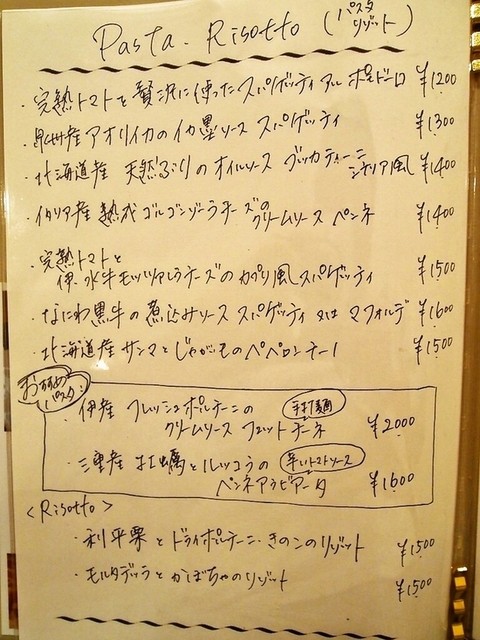 Pasta. Risotto (パスタ リゾット)
・完熟トマトを贅沢に使ったスパゲッティ アル ポモドーロ ¥1200
・泉州産アオリイカのイカ墨ソース スパゲッティ ¥1300
・北海道産 天然ぶりのオイルソース ブッカティーニ シチリア風 ¥1400
・イタリア産 熟成ゴルゴンゾーラチーズの
クリームソース ペンネ ¥1400
・完熟トマトと
伊.水牛モッツァレラチーズのカプリ風スパゲッティ ¥1500
・なにわ黒牛の煮込みソース スパゲッティ 又は マファルデ ¥1600
・北海道産サンマとじゃがいものペペロンチーノ ¥1500
おすすめ パスタ
・伊産 フレッシュポルチーニの 手打麺
クリームソース フェットチーネ ¥2000
・三重産 牡蠣とルッコラの 辛いトマトソース
ペンネアラビアータ ¥1600
<Risotto>
・利平栗とドライポルチーニ・きのこのリゾット ¥1500
・モルタデッラとかぼちゃのリゾット ¥1500